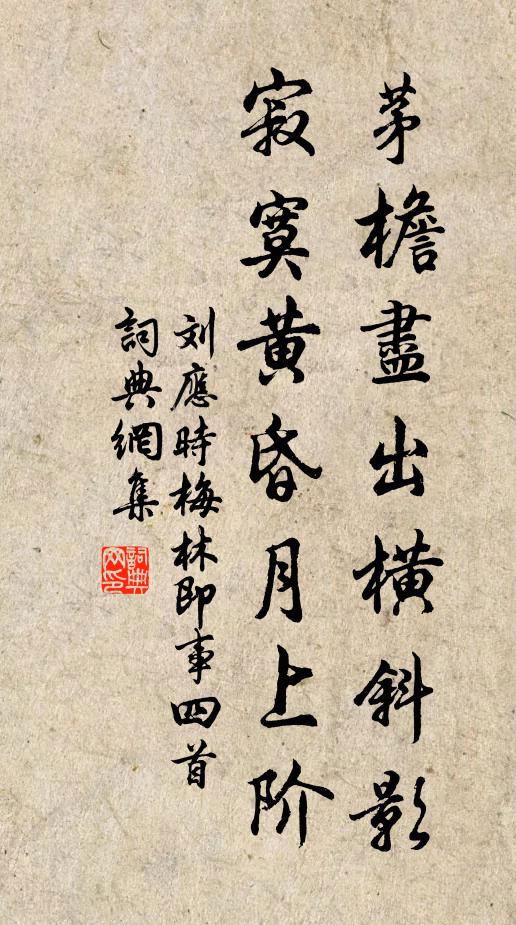 茅檐盡出橫斜影
寂寞黄昏月上阶
刘應時梅林即事四首
詞典網集
詞典網印